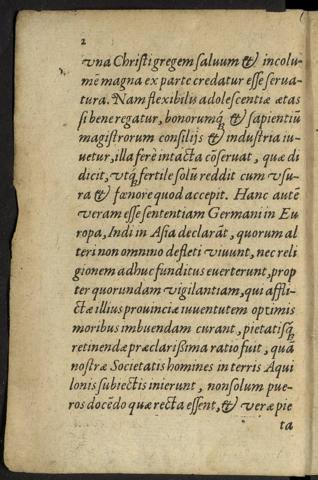 2
vna Christi gregem saluum & incolu-
mē magna ex parte credatur esse serua-
tura. Nam flexibilis adolescentiæ ætas
si bene regatur, bonorumq́; & sapientiū
magistrorum consilijs & industria iu-
uetur, illa ferè intacta cōseruat, quæ di
dicit, vtq́; fertile solū reddit cum vsu-
ra & fœnore quod accepit. Hanc autē
veram esse sententiam Germani in Eu
ropa, Indi in Asia declarāt, quorum al
teri non omnino defleti viuunt, nec reli
gionem adhuc funditus euerterunt, prop
ter quorundam vigilantiam, qui affli-
ctæ illius prouinciæ iuuentutem optimis
moribus imbuendam curant, pietatisq́;
retinendæ præclarißima ratio fuit, quā
nostræ Societatis homines in terris Aqui
lonis subiectis inierunt, non solum pue-
ros docēdo quæ recta essent, & veræ pie
ta